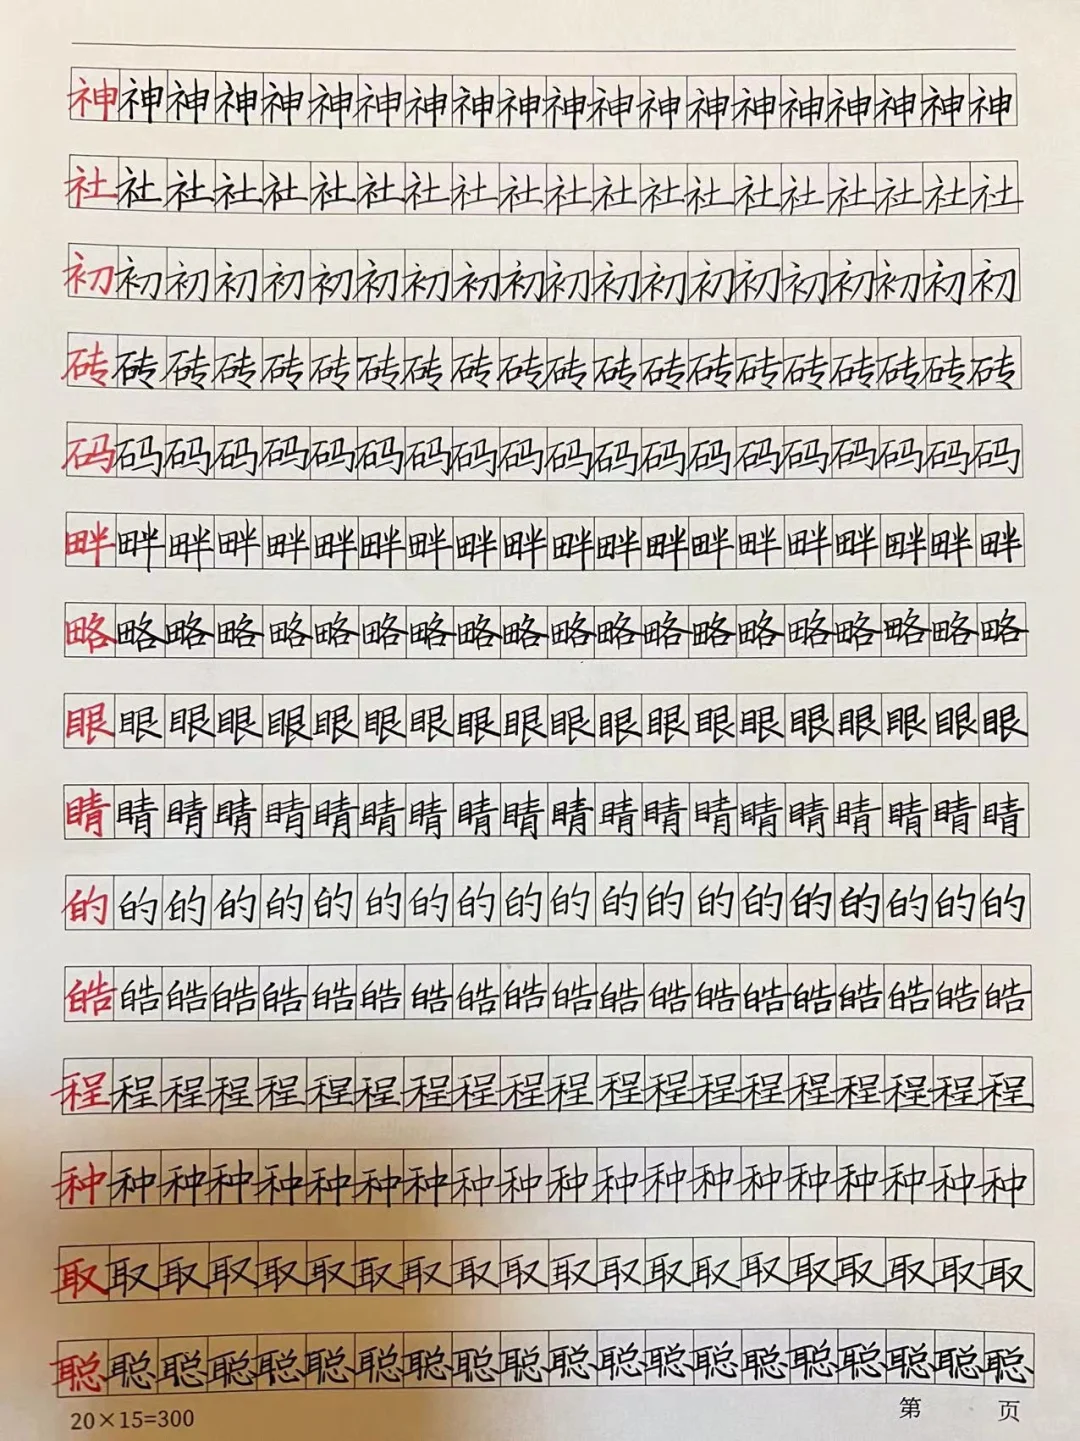 神神神神神神神神神神神神神神神神神神神神
社社社社社社社社社社社社社社社社社社社社
初初初初初初初初初初初初初初初初初初初初
砖砖砖砖砖砖砖砖砖砖砖砖砖砖砖砖砖砖砖砖
码码码码码码码码码码码码码码码码码码码码
畔畔畔畔畔畔畔畔畔畔畔畔畔畔畔畔畔畔畔畔
略略略略略略略略略略略略略略略略略略略略
眼眼眼眼眼眼眼眼眼眼眼眼眼眼眼眼眼眼眼眼
睛睛睛睛睛睛睛睛睛睛睛睛睛睛睛睛睛睛睛睛
的的的的的的的的的的的的的的的的的的的的
皓皓皓皓皓皓皓皓皓皓皓皓皓皓皓皓皓皓皓皓
程程程程程程程程程程程程程程程程程程程程
种种种种种种种种种种种种种种种种种种种种
取取取取取取取取取取取取取取取取取取取取
聪聪聪聪聪聪聪聪聪聪聪聪聪聪聪聪聪聪聪聪
20×15=300 第 页